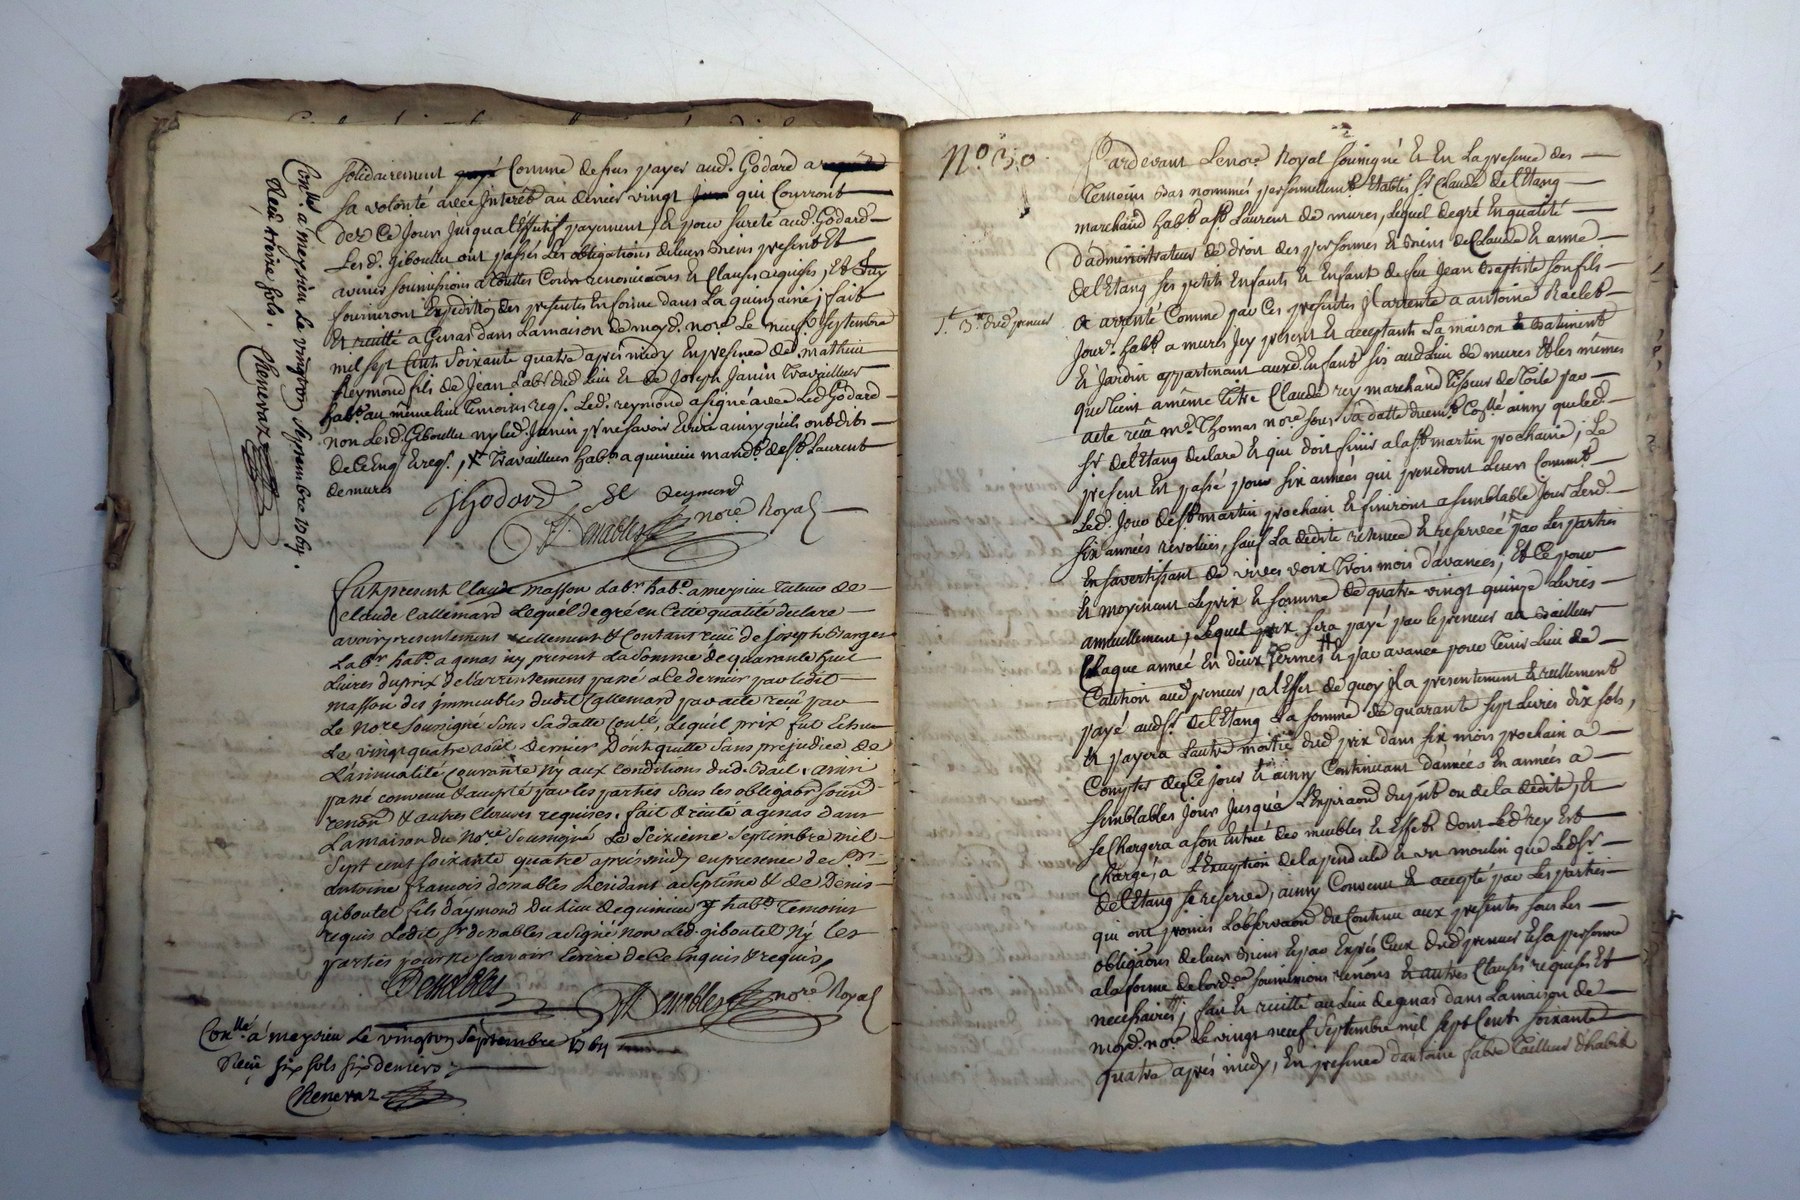 solidairement comme dessus payer aud. Godard a
sa volonté avec Interêt au denier vingt qui Courront
dez Ce Jour Jusqu'al'Effectif payement Et pour sureté aud. Godard
Lesd. giboulet ont passés Les obligations de leurs Biens presents Et
avenir soumissions a touttes Cours renonciaons Et Clauses requises, Et
fourniront Expedition des presentes En forme dans La quinzaine; fait
Et recitté a Genas dans La maison de moyd. nore. Le neuf Septembre
mil sept Cents Soixante quatre après midy En presence de mathieu
Reymond fils de Jean Labr dud. Lieu Et de Joseph Janin Travailleur
habt. au même lieu Temoins reqs. Led. reymond a signé avec Led. Godard
non Lesd. Giboullet ny led. Janin pr ne savoir Ecrire ainsy qu'ils ont dits
de ce Enqs Et reqs. Travailleurs habt. a quincieu mandt. de st. Laurent
de mures
JGodard Reymond
Denables nore. Royal
Conllé a meysieu Le vingtrois Septembre 1764.
Reçu treize sols. Chenevaz
Fut present Claude masson Labr. habt. a meysieu Tuteur de
Claude Lallemard Lequel de gré en Cette qualité declare
avoir presentement reellement & Contant reçu de Joseph Branges
Labr. habt. a genas icy present La Somme de quarante huit
Livres du prix de l'arrentement passé a ce dernier par ledit
masson des Immeubles dudit Lallemard par acte reçu par
Le Nore Sousigné Sous Sa datte Conlé, Lequel prix fut Echeu
Le vingt quatre août Dernier Dont quitte Sans prejudice de
L'annualité Courante Ny aux conditions dud. Bail, ainsi
passé convenu & accepté par les parties Sous les obligaons soumons
renons & autres Clauses requises. fait & recité a genas dans
La maison du Nore Soussigné Le Seizieme Septembre mil
Sept cent soixante quatre après midy en presence de Sr.
antoine françois denables Residant a Septême & de Denis
giboulet fils d'aymond Du Lieu de quincieu y habt. Temoins
requis Ledit Sr. denables a Signé Non Led. giboulet Ny les
parties pour ne Scavoir Ecrire de Ce Enquis & requis,
Denables Denables nore Royal
Conllé a meysieu Le vingtrois Septembre 1764
Reçu six sols six deniers
Chenevaz
No 30.
Pardevant Le nore. Royal Soussigné Et En La presence des
Temoins Bas nommés personnellement Etabli Sr. Claude de l'Etang
marchand habt. a st. Laurent de mures, Lequel de gré En qualité
D'administrateur de droit des personnes Et Biens de Claude Et anne
de l'Etang ses petits Enfants Et Enfant de feu Jean Baptiste son fils
a arrenté Comme par Ces presentes Il arrente a antoine Raclet
Jourr. habt. a mures Icy present Et acceptant La maison Et Batiment
Et Jardin appartenant auxd. Enfants sis aud. Lieu de mures Et Les mêmes
que tient a même titre Claude rey marchand Tisseur de toile par
acte reçu me. Thomas nore. sous sa datte duement Conllé ainsy que led.
Sr. del'Etang declare Et qui doit finir a la st. martin prochaine; Le
present Est passé pour six années qui prendront Leurs Commt.
Led. Jour de st. martin prochain Et finiront a semblable Jour Lesd.
six années revolües, sauf La dedite retenue Et reservée par Les parties
En s'avertissant de vives voix Trois mois d'avances, Et Ce pour
Et moyennant Le prix Et somme de quatre vingt quinze Livres
annuellement; Lequel prix sera payé par le preneur au Bailleur
Chaque année En deux Termes Et par avance pour Tenir Lieu de
Caution aud. preneur, a l'Effet de quoy Il a presentement Et reellement
payé aud. Sr. del'Etang La somme de quarante sept Livres dix sols,
Et payera Lautre moitié dud. prix dans six mois prochain a
Compter de Ce jour Et ainsy Continuant d'années En années a
semblables Jours Jusqu'a L'Expiraon du pnt ou de la dedite, Et
se Chargera a son Entrée des meubles Et Effets dont Led. rey Est
Chargé, a L'Exception de la pendule Et un moulin que Led. Sr.
del'Etang se reserve, ainsy Convenu Et accepté par Les parties
qui ont promis L'observaon du Contenu aux presentes sous Les
obligaons de leurs Biens Et par Exprès Ceux dud. preneur Et sa personne
a la forme de l'ordce. soumissions renons Et autres Clauses requises Et
necessaires; fait Et recitté au Lieu de genas dans La maison de
moyd. nore. Le vingt neuf Septembre mil sept Cents soixante
quatre après midy, En presence d'antoine fabre Tailleur d'habits